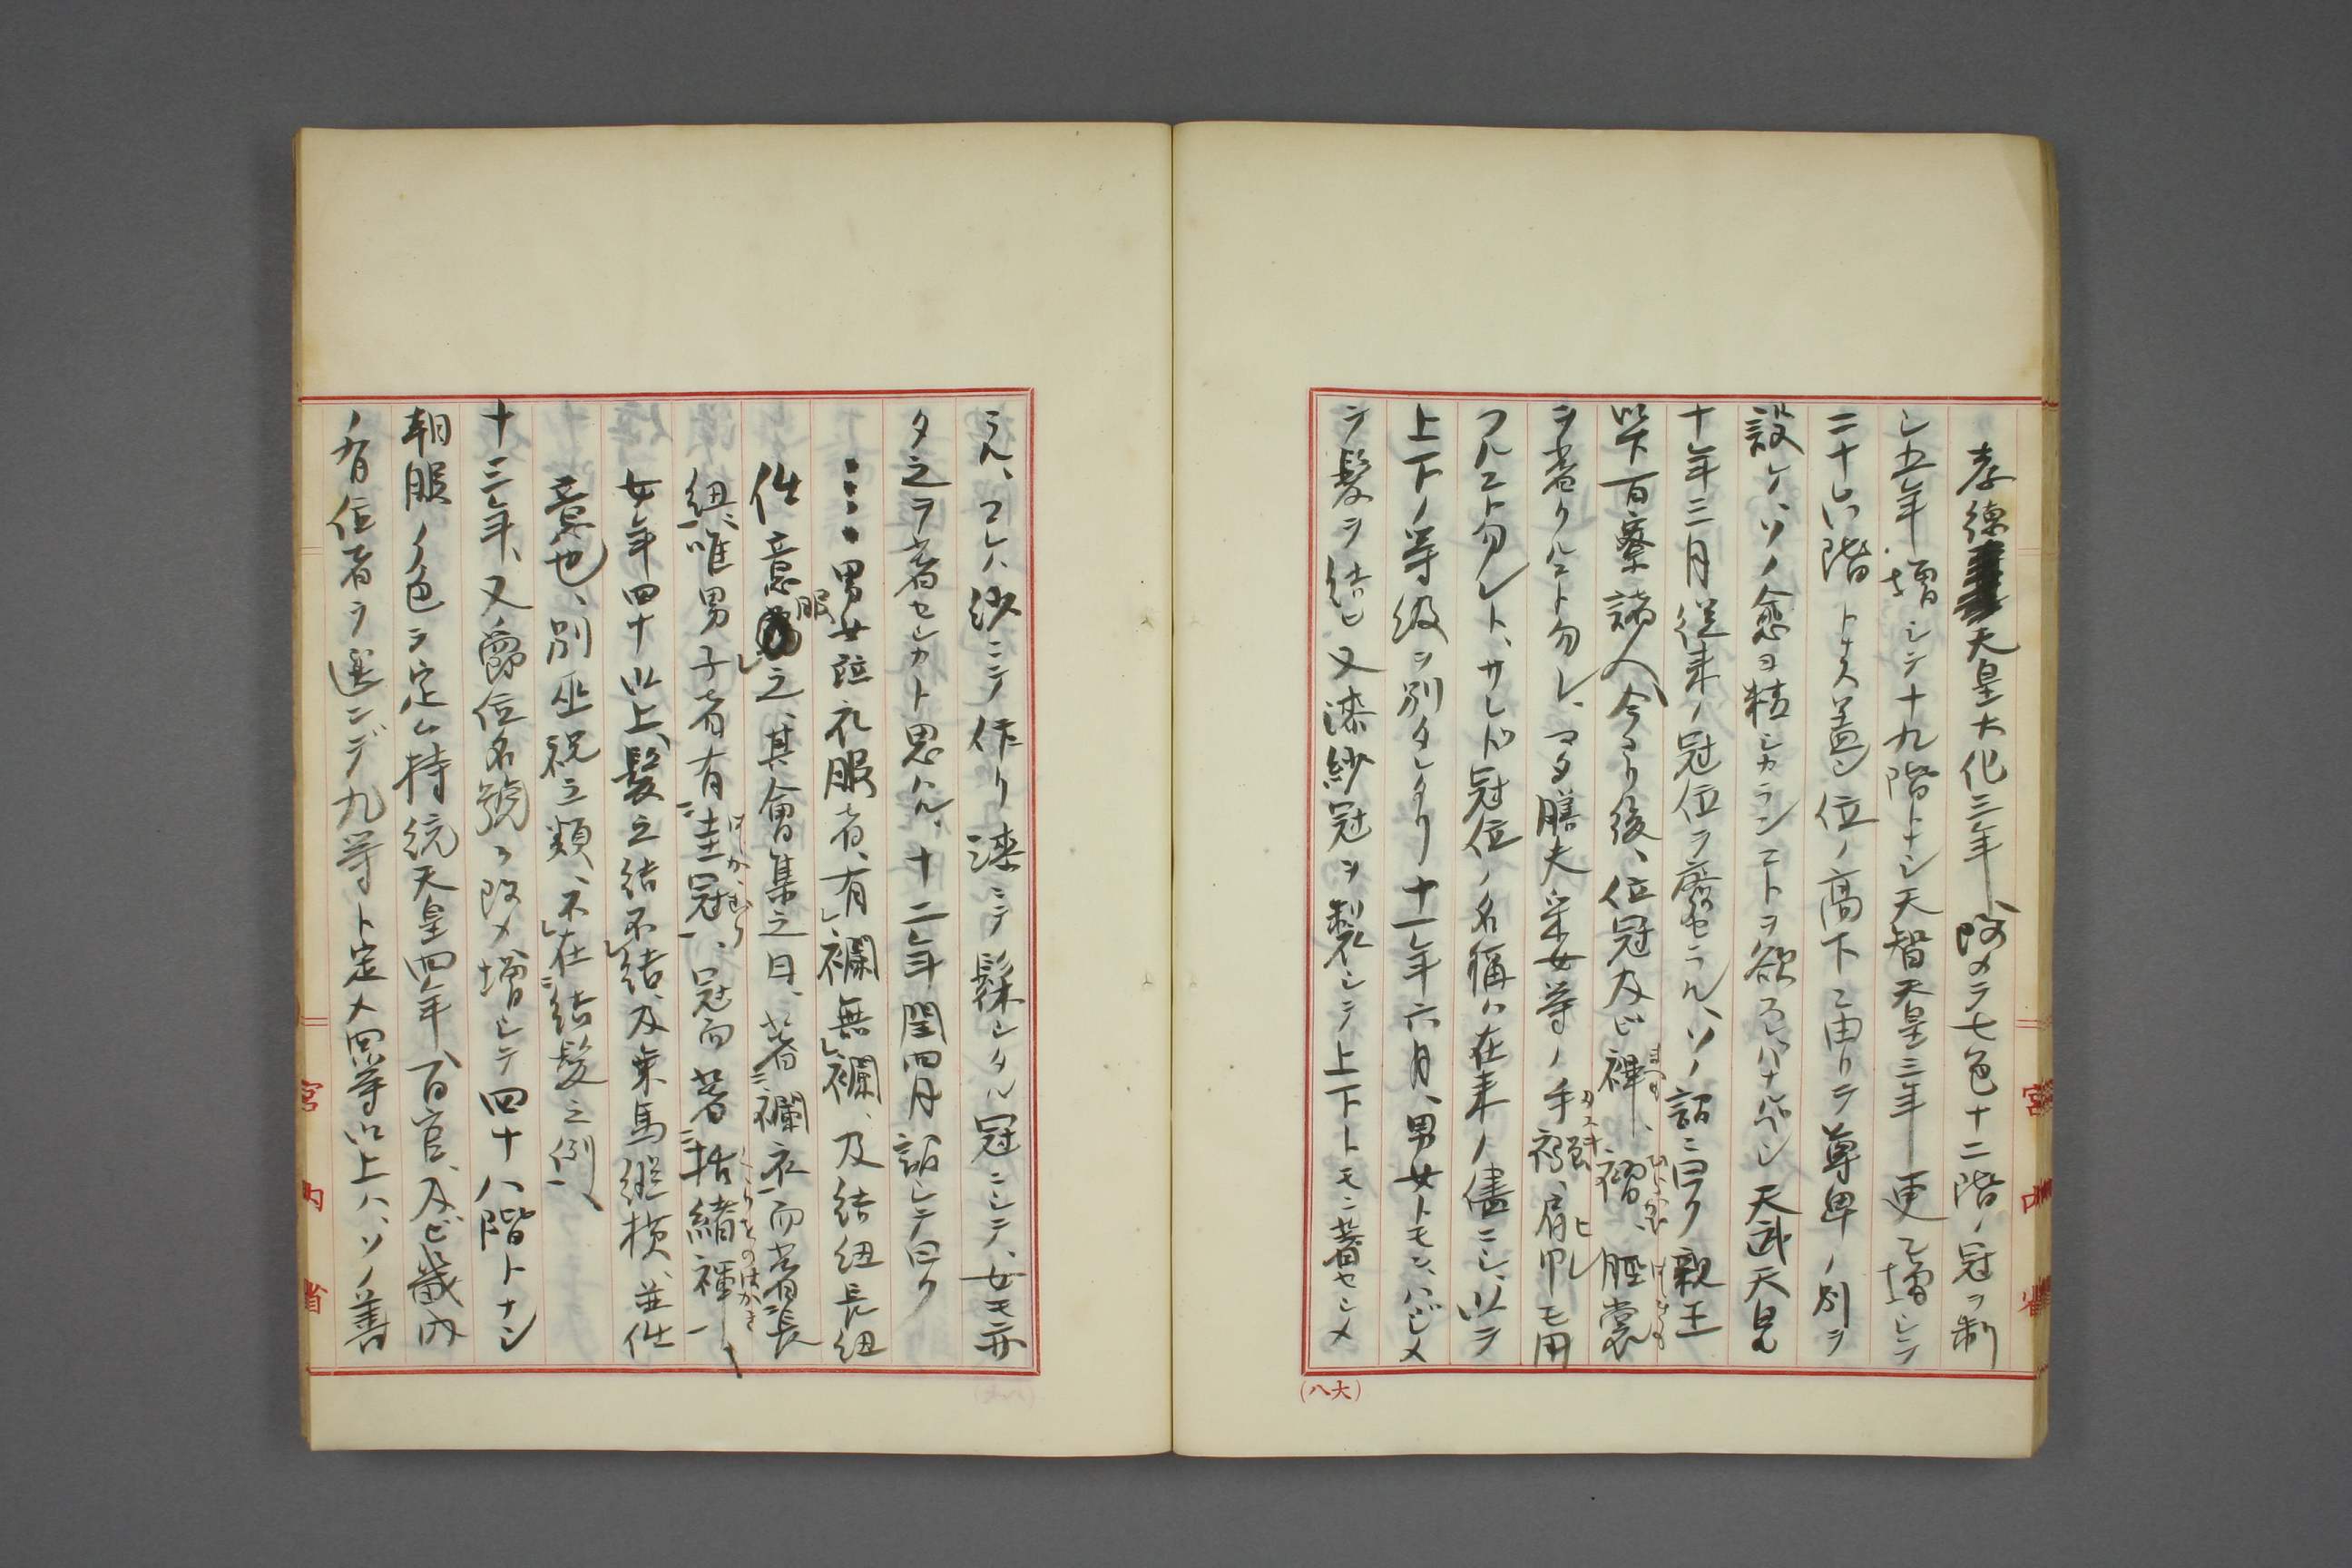 孝徳天皇大化三年、改メテ七色十二階ノ冠ヲ制
シ五年増シテ十九階トナシ天智天皇三年更ニ増シテ
二十六階トナス蓋シ位ノ高下ニ由リテ尊卑ノ別ヲ
設ケ、ソノ愈ヨ精シカランコトヲ欲スレバナルベシ天武天皇
十年三月従来ノ冠位ヲ廃セラル、ソノ詔ニ曰ク親王
以下百寮諸人今ヨリ後、位冠及ビ褌、褶、脛裳
ヲ着クルコト勿レ、マタ膳夫采女等ノ手襁、肩巾モ用
フルコト勿レト、サレド冠位ノ名称ハ在来ノ儘ニシ、以テ
上下ノ等級ヲ別タレタリ十一年六月、男女トモニ、ハジメ
テ髪ヲ結ヒ又漆紗冠ヲ製シテ上下トモニ著セシメ
(八大)
ラル、コレハ紗ニテ作リ漆ニテ髹シタル冠ニシテ、女モ亦
タ之ヲ着セシカト思ハル、十二年閏四月詔シテ曰ク
男女並礼服者、有襴無襴、及結紐長紐
任意服之、其會集之日、著襴衣而着長
紐、唯男子者有圭冠、冠而著括緒褌
女年四十以上、髪之結不結、及乗馬縦横、並任
意也、別巫祝之類、不在結髪之例
十三年、又爵位名號ヲ改メ増シテ四十八階トナシ
朝服ノ色ヲ定ム持統天皇四年、百官、及ビ畿内
ノ有位者ヲ選ンデ九等ト定メ四等以上ハ、ソノ善
宮内省